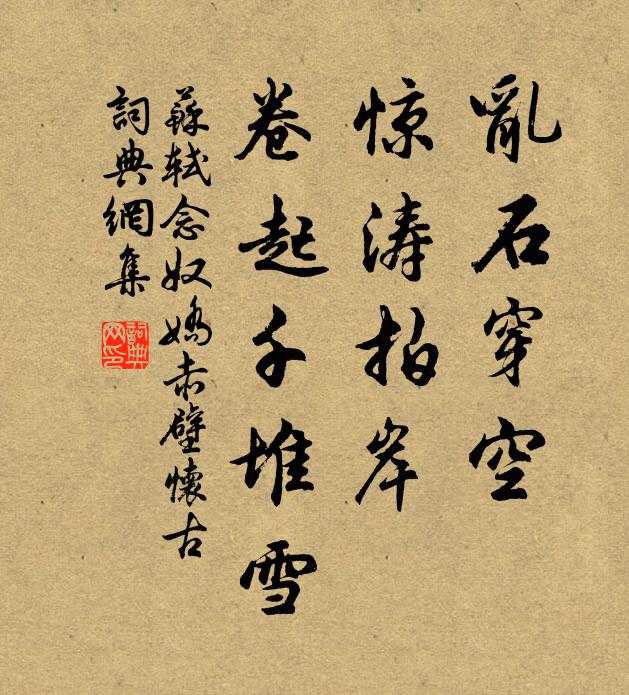 亂石穿空
惊涛拍岸
卷起千堆雪
蘇軾念奴嬌赤壁懷古
詞典網集
詞典网印